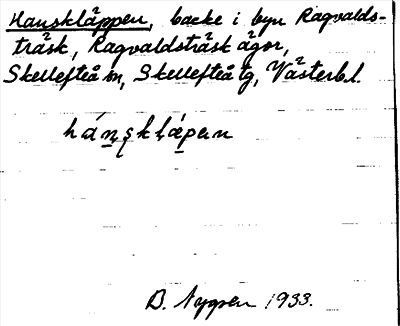 Hanskläppen, backe i byn Ragvalds-
träsk, Ragvaldsträsk ägor,
Skellefteå sn, Skellefteå tg, Västerb.l.
hánskläpen
B. Nygren 1933.